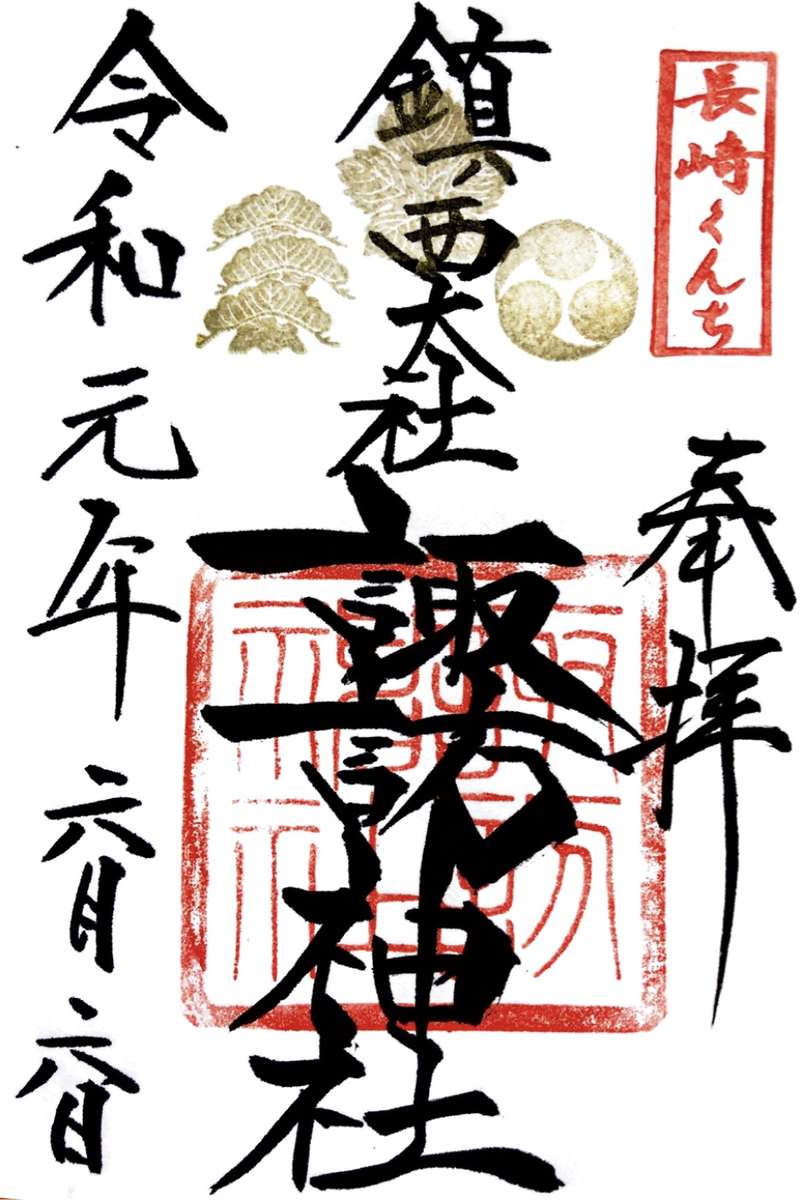 長崎くんち
奉拝
鎮西大社
諏訪神社
令和元年六月六日
諏訪
神社